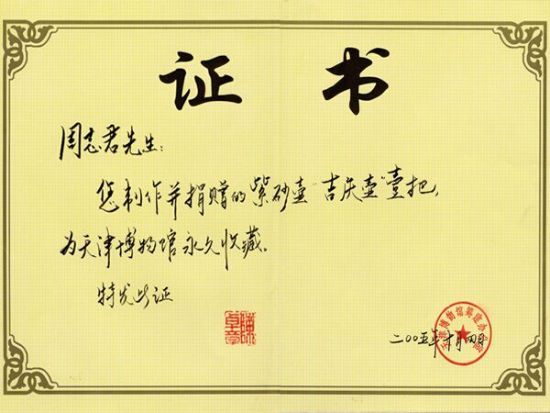 证书
周志君先生:
您制作并捐赠的紫砂壶“吉庆壶”壹把,
为天津博物馆永久收藏。
特发此证
二00五年十月四日